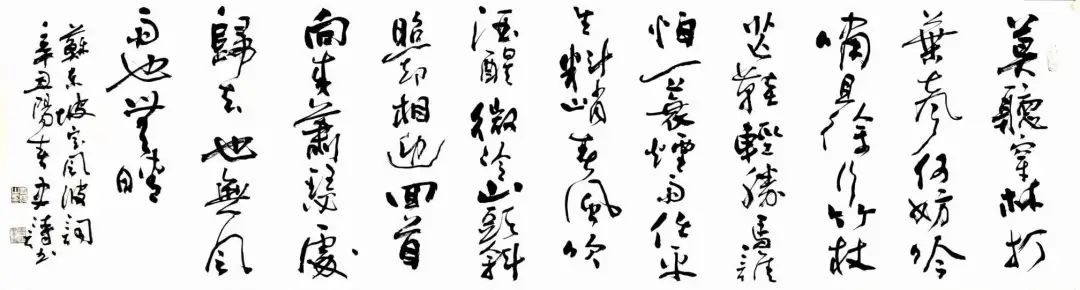 莫聽穿林打
葉聲何妨吟
嘯且徐行竹杖
芒鞋輕勝馬誰
怕一蓑煙雨任平
生料峭春風吹
酒醒微冷山頭斜
照却相迎回首
向來蕭瑟處
歸去也無風
雨也無晴
蘇東坡定風波詞
辛丑陽春